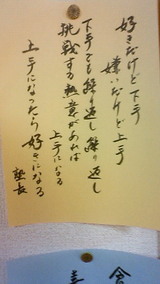 好きだけど下手
嫌いだけど上手
下手でも繰り返し繰り返し
挑戦する熱意があれば
上手になる
上手になったら好きになる
塾長